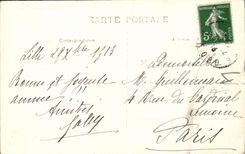 CARTE POSTALE
Correspondance
Lille 29 Xbre 1913
Bonne et Joyeuse
année !!
Amitiés
Demoiselle
M. Guillemard
4 Rue du Cardinal
Lemoine
Paris